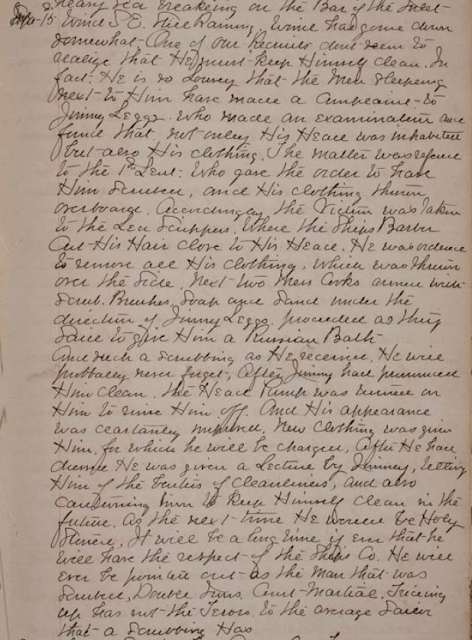 Heavy Sea breaking on the Bar of the Inlet
Sep. 15 Wind S.E. Still Raining, Wind has gone down
somewhat - One of our Recruits dont seem to
realize that He must keep Himself clean. In
fact. He is so Lousey that the Men sleeping
next to Him have made a Complaint to
Jimmy Leggs. Who made an examination and
finds that not onley His Head was inhabited
but also His clothing. The matter was referred
to the 1st Leut. Who gave the order to have
Him Scrubed, and His clothing thrown
overboard. Accordingly the Victim was taken
to the Lee Scuppers. Where the Ships Barber
Cut His Hair close to His Head. He was ordered
to remove all His clothing, which was thrown
over the side. Next two Mess Cooks armed with
Scrub. Brushes, Soap and Sand under the
direction of Jimmy Leggs. proceeded as they
said to give Him a Russian Bath.
And such a scrubbing as He received, He will
probabley never forget, After Jimmy had pronounced
Him clean. the Head Pump was turned on
Him to rinse Him off. And His appearance
was ceartanley improved, New clothing was given
Him, for which he will be charged, After He had
He was given a Lecture by Jimmey, telling
Him of the of Cleanliness, and also
Him to keep Himself clean in the
future, as the next time He would be Holy
Stoned, It will be a long time if ever that he
will have the respect of the Ships Co. He will
ever be pointed out as the Man that was
Scrubed, Double Irons, Court-Martial, Triceing
up has not the Terrors to the average Sailor
that a Scrubbing Has